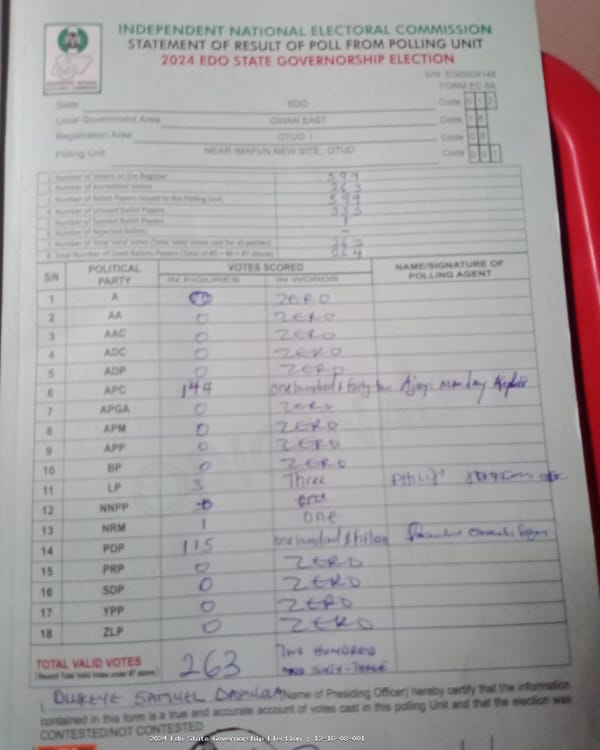 INDEPENDENT NATIONAL ELECTORAL COMMISSION
STATEMENT OF RESULT OF POLL FROM POLLING UNIT
2024 EDO STATE GOVERNORSHIP ELECTION
FORM EC 8A
State EDO Code 012
Local Government Area OWAN EAST Code 16
Registration Area OTUO I Code 08
Polling Unit NEAR IMAFUN NEW SITE, OTUO Code 001
1. Number of Voters on the Register 599
2. Number of Accredited Voters 263
3. Number of Ballot Papers Issued to the Polling Unit 599
4. Number of Unused Ballot Papers 335
5. Number of Spoiled Ballot Papers 1
6. Number of Rejected Ballots –
7. Number of Total Valid Votes (Total Valid Votes cast for all parties) 263
8. Total Number of Used Ballot Papers (Total of #5 + #6 + #7 above) 264
S/N POLITICAL PARTY VOTES SCORED NAME/SIGNATURE OF POLLING AGENT
IN FIGURES IN WORDS
1 A ZERO
2 AA 0 ZERO
3 AAC 0 ZERO
4 ADC 0 ZERO
5 ADP 0 ZERO
6 APC 144 one hundred & forty Ajayi monday
7 APGA 0 ZERO
8 APM 0 ZERO
9 APP 0 ZERO
10 BP 0 ZERO
11 LP 3 Three
12 NNPP
13 NRM 1 one
14 PDP 115 one hundred & fifteen
15 PRP 0 ZERO
16 SDP 0 ZERO
17 YPP 0 ZERO
18 ZLP 0 ZERO
TOTAL VALID VOTES 263 TWO HUNDRED AND SIXTY-THREE
I, SAMUEL (Name of Presiding Officer) hereby certify that the information
contained in this form is a true and accurate account of votes cast in this polling Unit and that the election was
CONTESTED/NOT CONTESTED
2024 Edo State Governorship Election : 12-16-08-001